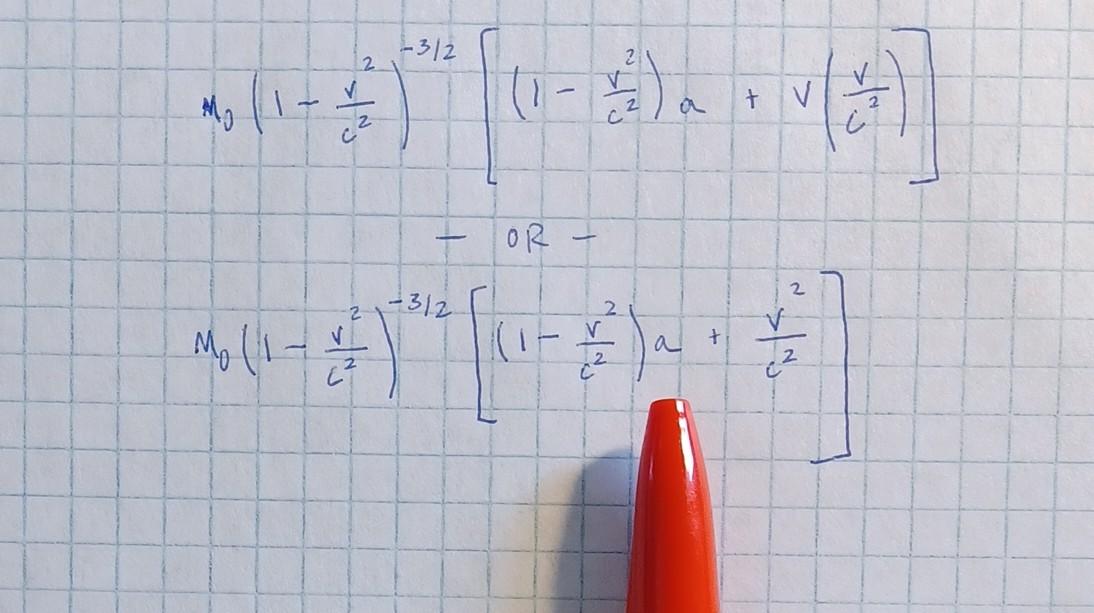 M₀ (1 - v²/c²)^(-3/2) [(1 - v²/c²) a + v (v/c²)]
- OR -
M₀ (1 - v²/c²)^(-3/2) [(1 - v²/c²) a + v²/c²]